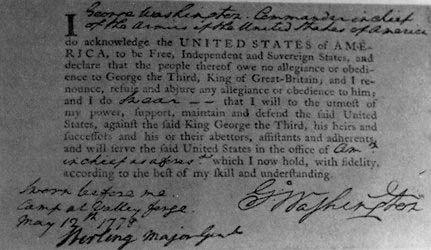 I George Washington Commander in chief
of the Armies of the United States of America
do acknowledge the UNITED STATES of AME-
RICA, to be Free, Independent and Sovereign States, and
declare that the people thereof owe no allegiance or obedi-
ence to George the Third, King of Great-Britain; and I re-
nounce, refuse and abjure any allegiance or obedience to him;
and I do Swear — — that I will to the utmost of
my power, support, maintain and defend the said United
States, against the said King George the Third, his heirs and
successors and his or their abettors, assistants and adherents,
and will serve the said United States in the office of
in chief as aforesd. which I now hold, with fidelity,
according to the best of my skill and understanding.
Sworn before me
Camp at Valley forge
May 12th 1778
Stirling Major Genl
Go Washington